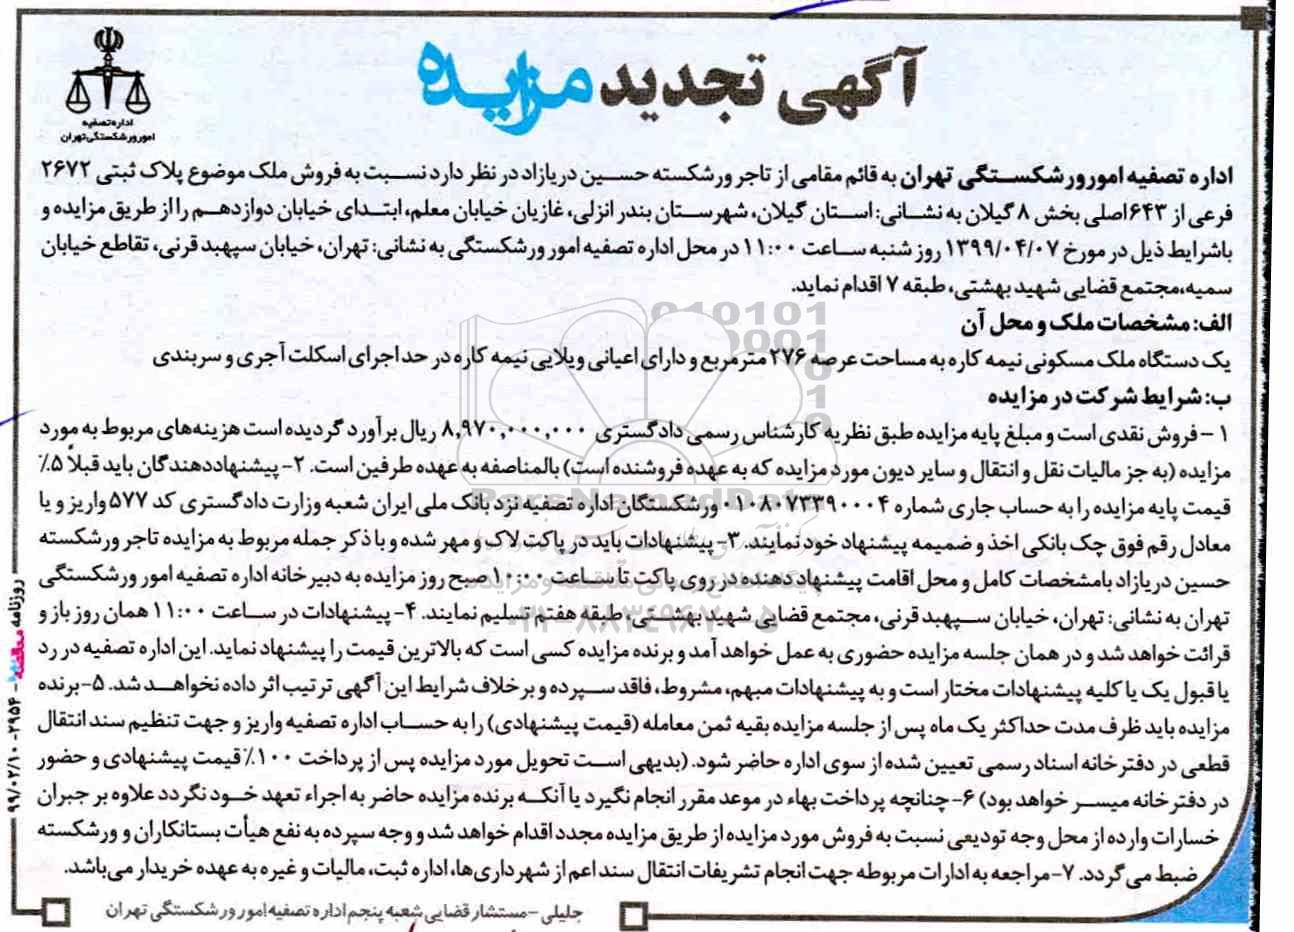 آگهی تجدید مزایده
اداره تصفیه
امور ورشکستگی تهران
اداره تصفیه امور ورشکستگی تهران به قائم مقامی از تاجر ورشکسته حسین دریازاد در نظر دارد نسبت به فروش ملک موضوع پلاک ثبتی ۲۶۷۲
فرعی از ۶۴۳ اصلی بخش ۸ گیلان به نشانی: استان گیلان، شهرستان بندر انزلی، غازیان خیابان معلم، ابتدای خیابان دوازدهم را از طریق مزایده و
باشرایط ذیل در مورخ ۱۳۹۹/۰۴/۰۷ روز شنبه ساعت ۱۱:۰۰ در محل اداره تصفیه امور ورشکستگی به نشانی: تهران، خیابان سپهبد قرنی، تقاطع خیابان
سمیه،مجتمع قضایی شهید بهشتی، طبقه ۷ اقدام نماید.
الف: مشخصات ملک و محل آن
یک دستگاه ملک مسکونی نیمه کاره به مساحت عرصه ۲۷۶ مترمربع و دارای اعیانی ویلایی نیمه کاره در حد اجرای اسکلت آجری و سربندی
ب: شرایط شرکت در مزایده
۱ - فروش نقدی است و مبلغ پایه مزایده طبق نظریه کارشناس رسمی دادگستری ۸,۹۷۰,۰۰۰,۰۰۰ ریال برآورد گردیده است هزینه‌های مربوط به مورد
مزایده (به جز مالیات نقل و انتقال و سایر دیون مورد مزایده که به عهده فروشنده است) بالمناصفه به عهده طرفین است. ۲- پیشنهاددهندگان باید قبلاً ۵٪
قیمت پایه مزایده را به حساب جاری شماره ۰۱۰۸۰۷۳۳۹۰۰۰۴ ورشکستگان اداره تصفیه نزد بانک ملی ایران شعبه وزارت دادگستری کد ۵۷۷ واریز و یا
معادل رقم فوق چک بانکی اخذ و ضمیمه پیشنهاد خود نمایند. ۳- پیشنهادات باید در پاکت لاک و مهر شده و با ذکر جمله مربوط به مزایده تاجر ورشکسته
حسین دریازاد بامشخصات کامل و محل اقامت پیشنهاد دهنده در روی پاکت تا ساعت ۱۰:۰۰ صبح روز مزایده به دبیرخانه اداره تصفیه امور ورشکستگی
تهران به نشانی: تهران، خیابان سپهبد قرنی، مجتمع قضایی شهید بهشتی، طبقه هفتم تسلیم نمایند. ۴- پیشنهادات در ساعت ۱۱:۰۰ همان روز باز و
قرائت خواهد شد و در همان جلسه مزایده حضوری به عمل خواهد آمد و برنده مزایده کسی است که بالاترین قیمت را پیشنهاد نماید. این اداره تصفیه در رد
یا قبول یک یا کلیه پیشنهادات مختار است و به پیشنهادات مبهم، مشروط، فاقد سپرده و برخلاف شرایط این آگهی ترتیب اثر داده نخواهد شد. ۵- برنده
مزایده باید ظرف مدت حداکثر یک ماه پس از جلسه مزایده بقیه ثمن معامله (قیمت پیشنهادی) را به حساب اداره تصفیه واریز و جهت تنظیم سند انتقال
قطعی در دفترخانه اسناد رسمی تعیین شده از سوی اداره حاضر شود. (بدیهی است تحویل مورد مزایده پس از پرداخت ۱۰۰٪ قیمت پیشنهادی و حضور
در دفترخانه میسر خواهد بود) ۶- چنانچه پرداخت بهاء در موعد مقرر انجام نگیرد یا آنکه برنده مزایده حاضر به اجراء تعهد خود نگردد علاوه بر جبران
خسارات وارده از محل وجه تودیعی نسبت به فروش مورد مزایده از طریق مزایده مجدد اقدام خواهد شد و وجه سپرده به نفع هیأت بستانکاران و ورشکسته
ضبط می گردد. ۷- مراجعه به ادارات مربوطه جهت انجام تشریفات انتقال سند اعم از شهرداری‌ها، اداره ثبت، مالیات و غیره به عهده خریدار می‌باشد.
جلیلی - مستشار قضایی شعبه پنجم اداره تصفیه امور ورشکستگی تهران
روزنامه مناقصه - ۲۹۵۴ - ۹۹/۰۲/۱۰
ParsNamadData
۰۲۱-۸۸۳۴۹۶۷۰-۵